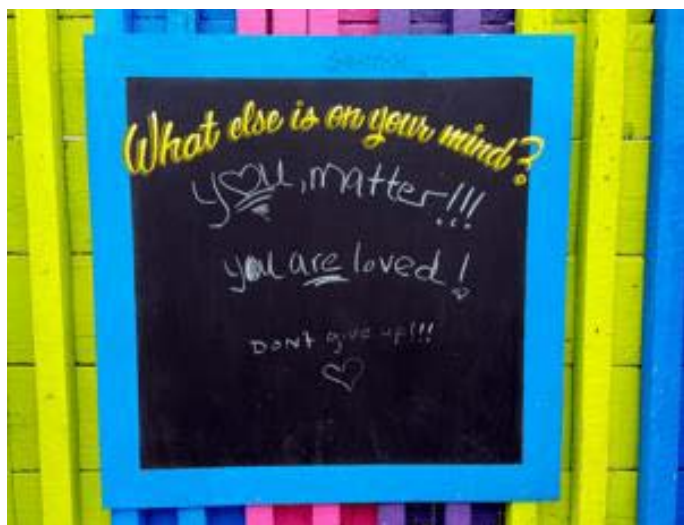 What else is on your mind?
you, matter!!!
you are loved!
DON't give up!!!